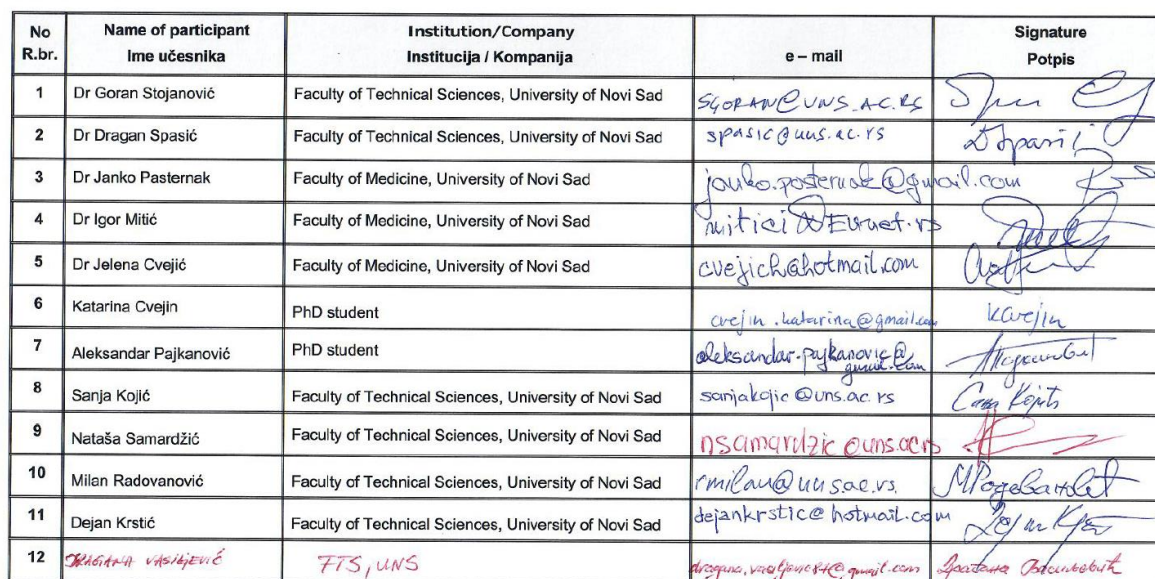 No Name of participant Institution/Company e – mail Signature
R.br. Ime učesnika Institucija / Kompanija Potpis
1 Dr Goran Stojanović Faculty of Technical Sciences, University of Novi Sad SGORAN@UNS.AC.RS
2 Dr Dragan Spasić Faculty of Technical Sciences, University of Novi Sad spasic@uns.ac.rs
3 Dr Janko Pasternak Faculty of Medicine, University of Novi Sad janko.pasternak@gmail.com
4 Dr Igor Mitić Faculty of Medicine, University of Novi Sad mitici@EUnet.rs
5 Dr Jelena Cvejić Faculty of Medicine, University of Novi Sad cvejich@hotmail.com
6 Katarina Cvejin PhD student cvejin.katarina@gmail.com kcvejin
7 Aleksandar Pajkanović PhD student aleksandar.pajkanovic@
gmail.com
8 Sanja Kojić Faculty of Technical Sciences, University of Novi Sad sanjakojic@uns.ac.rs
9 Nataša Samardžić Faculty of Technical Sciences, University of Novi Sad nsamardzic@uns.ac.rs
10 Milan Radovanović Faculty of Technical Sciences, University of Novi Sad rmilan@uns.ac.rs
11 Dejan Krstić Faculty of Technical Sciences, University of Novi Sad dejankrstic@hotmail.com
12 DRAGANA VASILJEVIĆ FTS, UNS